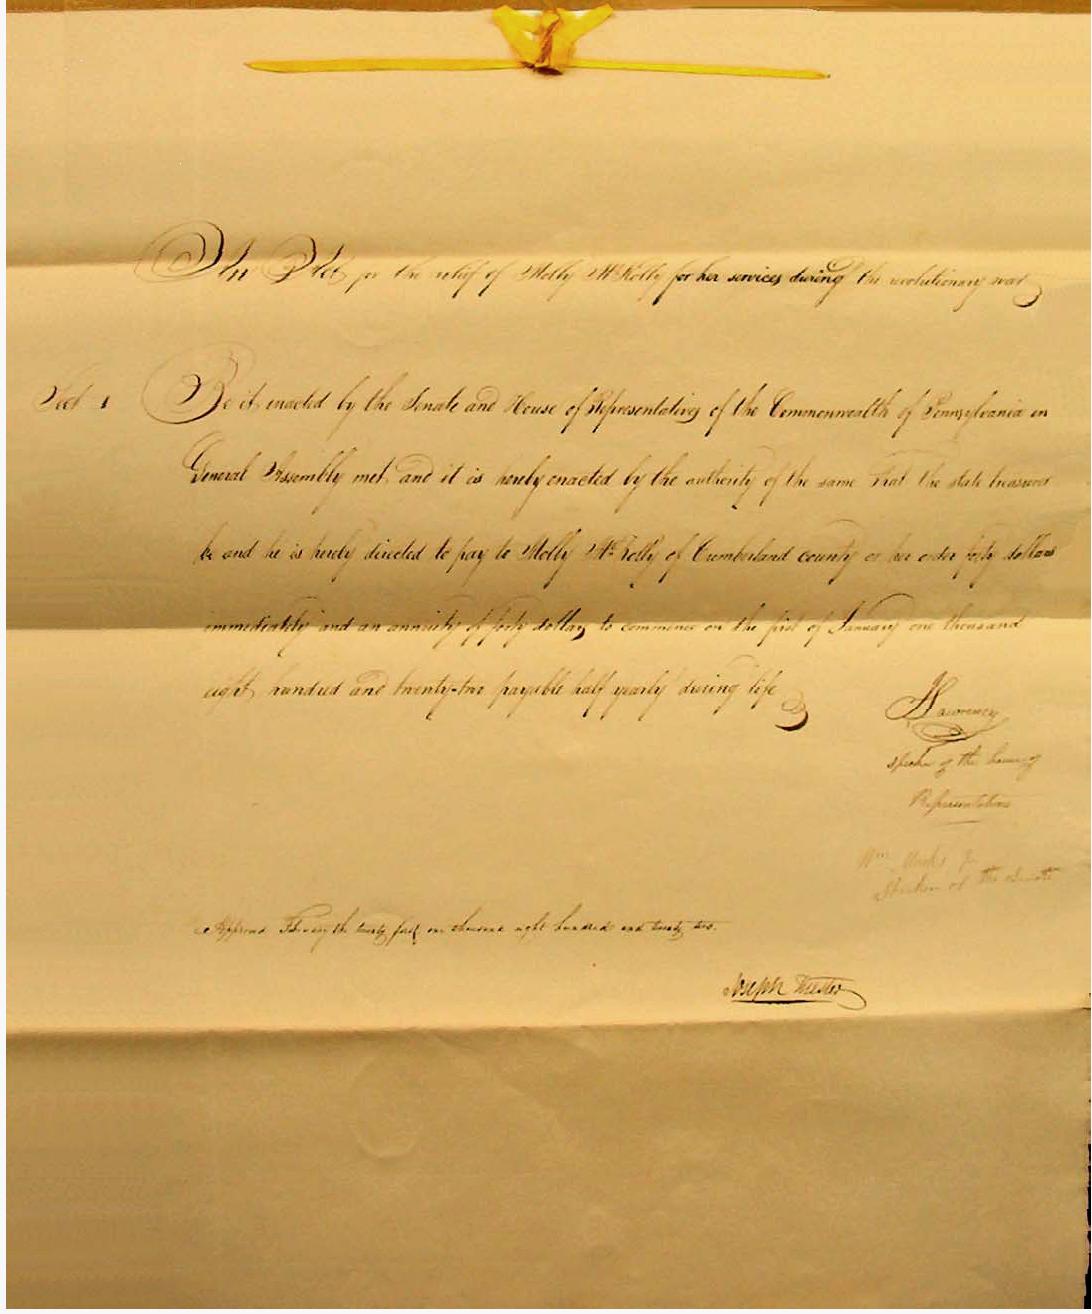 An Act for the relief of Molly McKolly for her services during the revolutionary war
Sect 1 Be it enacted by the Senate and House of Representatives of the Commonwealth of Pennsylvania in
General Assembly met and it is hereby enacted by the authority of the same That the state treasurer
be and he is hereby directed to pay to Molly McKolly of Cumberland county or her order forty dollars
immediately and an annuity of forty dollars to commence on the first of January one thousand
eight hundred and twenty-two payable half yearly during life
J Lawrence
speaker of the house of
Representatives
Wm Marks Jr
Speaker of the Senate
Approved February the twenty first one thousand eight hundred and twenty two.
Joseph Hiester